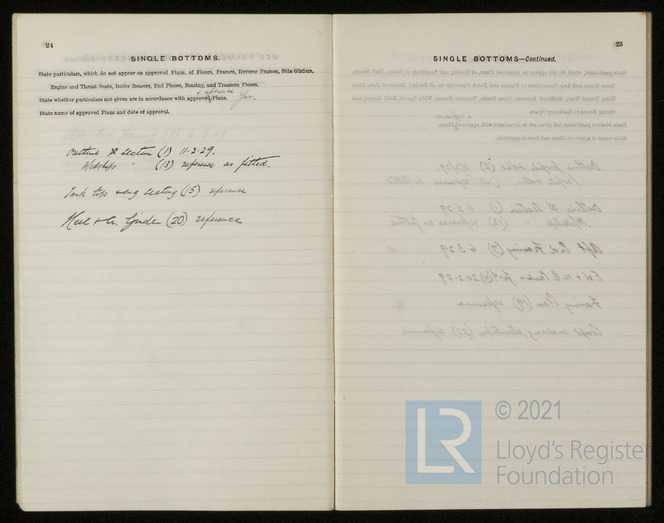 24
SINGLE BOTTOMS.
State particulars, which do not appear on approved Plans, of Floors, Frames, Reverse Frames, Side Girders,
Engine and Thrust Seats, Boiler Bearers, End Floors, Bossing, and Transom Floors.
& reference
State whether particulars not given are in accordance with approved Plans. Yes.
State name of approved Plans and date of approval.
Outline & Section (1) 11.2.29.
Midships " (13) reference as fitted.
Tank tops & eng seating (15) reference
Keel & Cr. Girder (20) reference
25
SINGLE BOTTOMS—Continued.
LR
© 2021
Lloyd's Register
Foundation